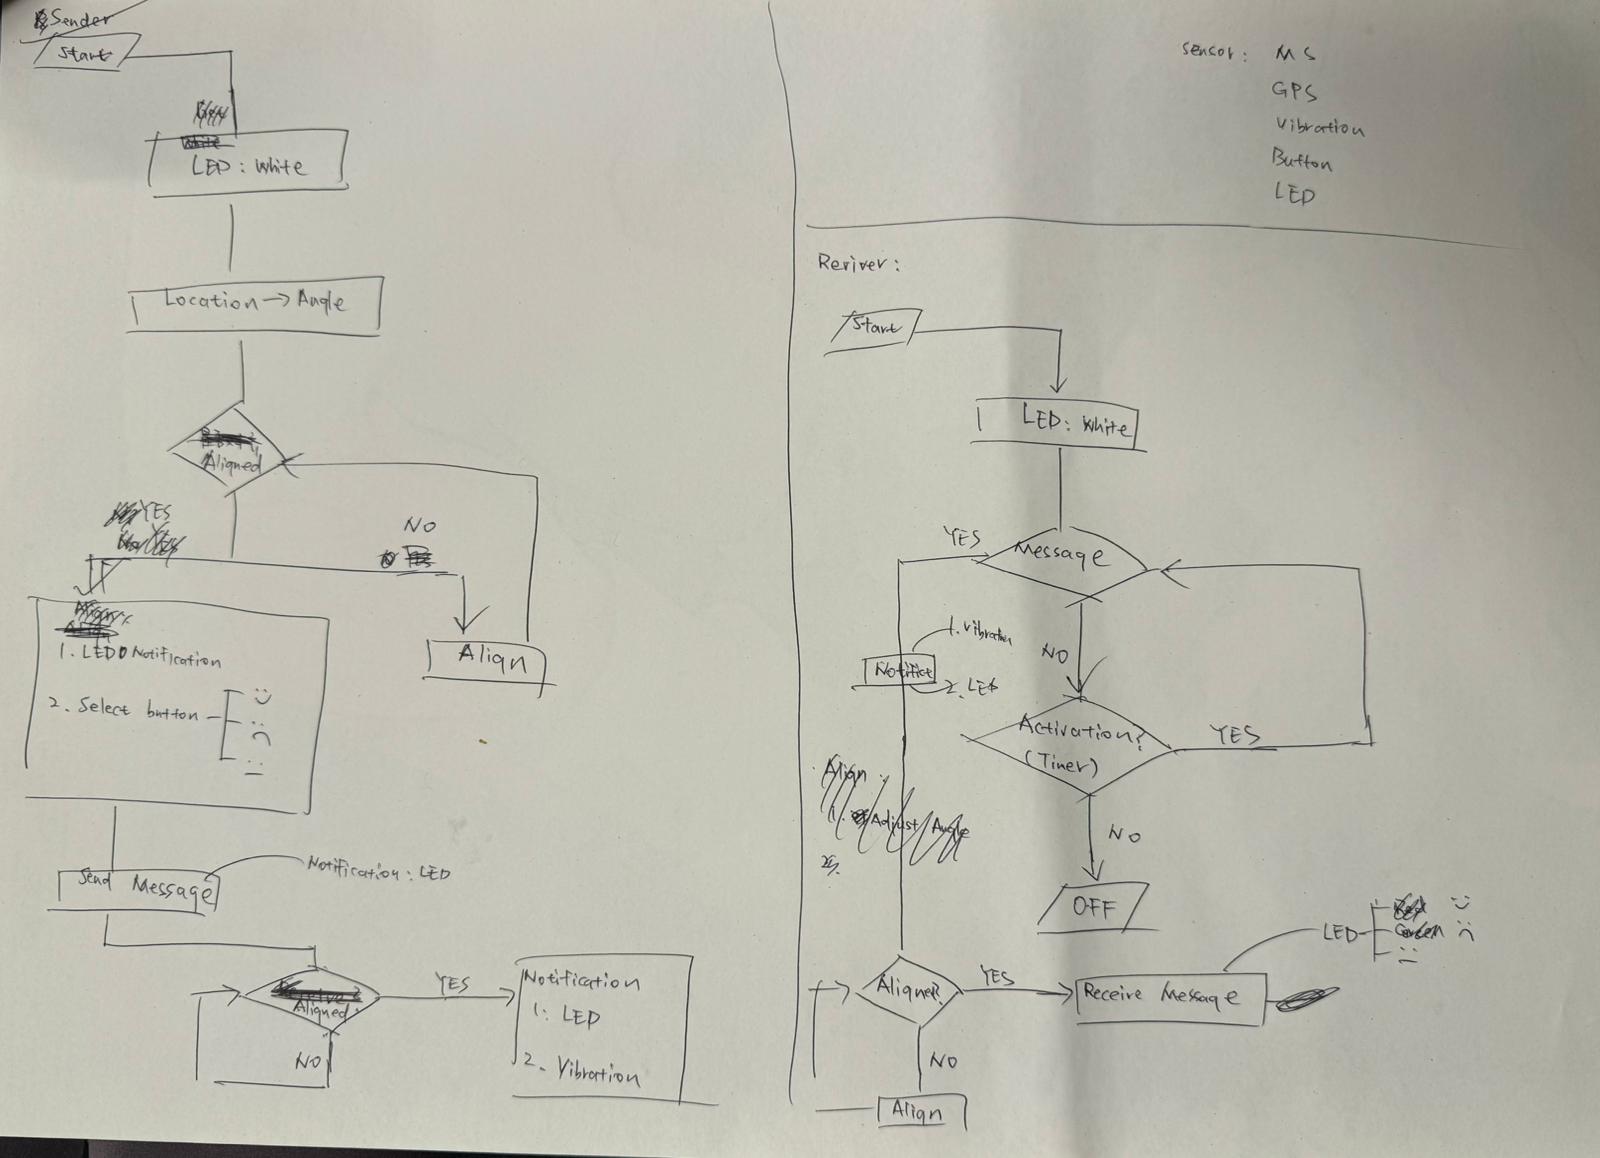 Sender
Start
LED: White
Location → Angle
Aligned
YES
NO
Align
1. LED Notification
2. Select button
:)
:(
:|
Send Message
Notification: LED
Aligned
YES
NO
Notification
1: LED
2. Vibration
Sensor: MS
GPS
Vibration
Button
LED
Reriver:
Start
LED: White
Message
YES
NO
Notifict
1. Vibration
2. LED
Activation?
(Timer)
YES
NO
OFF
Align
1. Adjust Angle
2.
Aligned?
YES
NO
Align
Receive Message
LED
:)
:(
:|